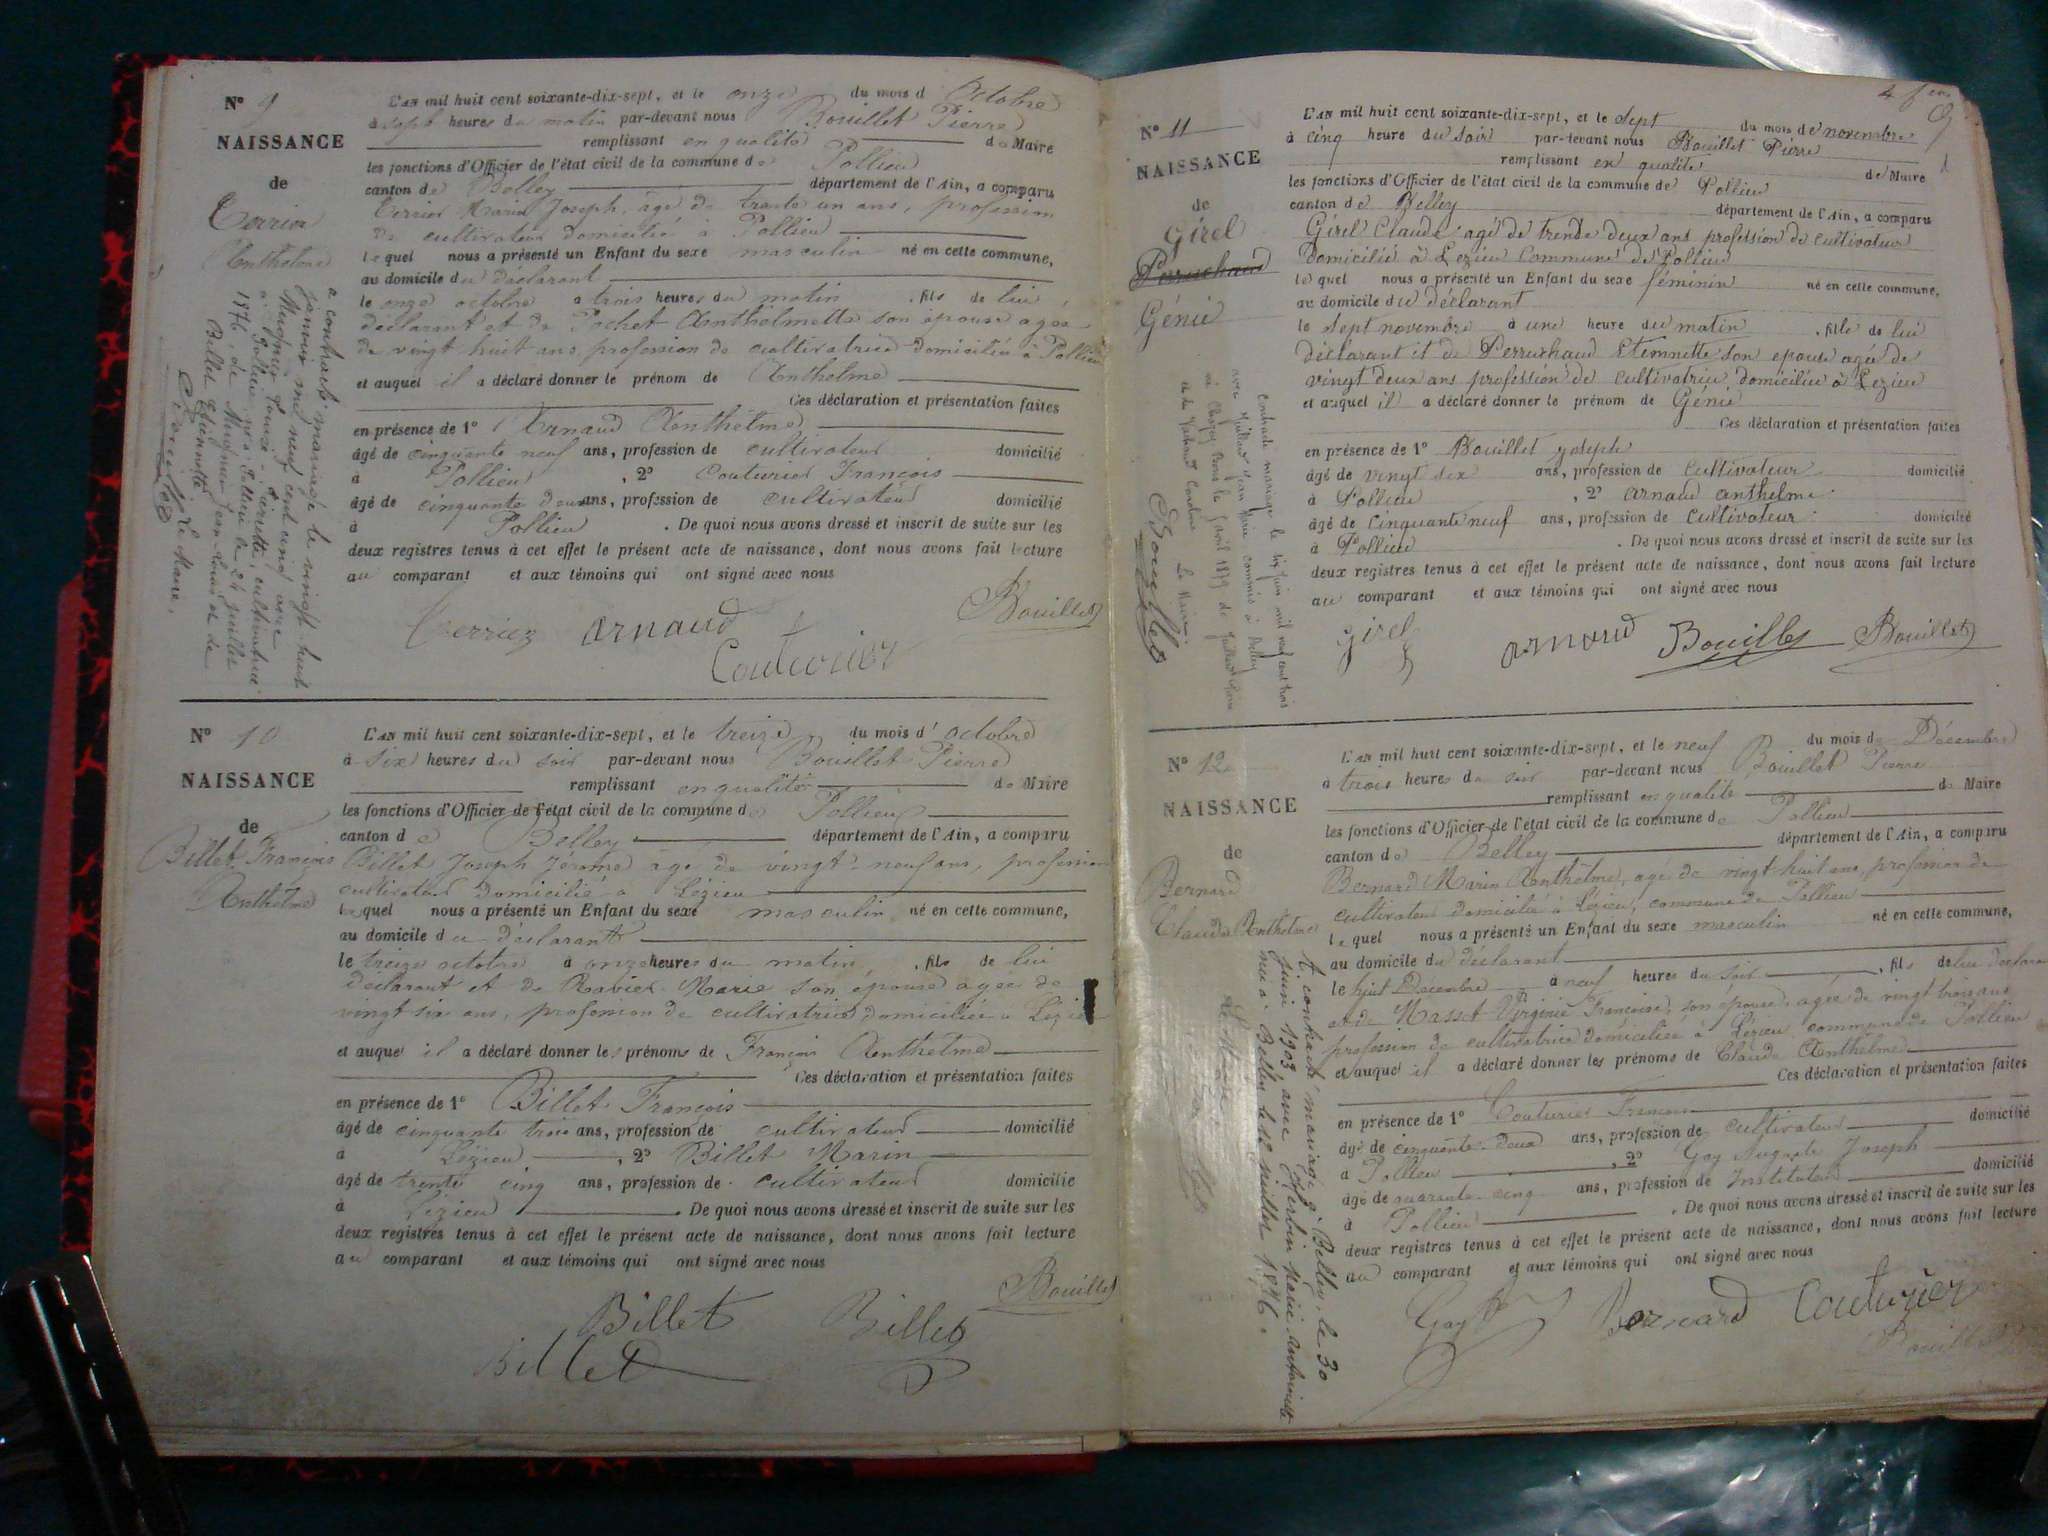 N° 9
NAISSANCE
de
Terrier
Anthelme
L'AN mil huit cent soixante-dix-sept, et le onze du mois d Octobre
à sept heures du matin par-devant nous Bouillet Pierre
remplissant en qualité de Maire
les fonctions d'Officier de l'état civil de la commune de Pollieu
canton de Belley département de l'Ain, a comparu
Terrier Marin Joseph, âgé de trente un ans, profession
de cultivateur domicilié à Pollieu
lequel nous a présenté un Enfant du sexe masculin né en cette commune,
au domicile du déclarant
le onze octobre à trois heures du matin, fils de lui
déclarant et de Pochet Anthelmette son épouse agée
de vingt huit ans, profession de cultivatrice domiciliée à Pollieu
et auquel il a déclaré donner le prénom de Anthelme
Ces déclaration et présentation faites
en présence de 1° Arnaud Anthelme
âgé de cinquante neuf ans, profession de cultivateur domicilié
à Pollieu, 2° Couturier François
âgé de cinquante deux ans, profession de cultivateur domicilié
à Pollieu. De quoi nous avons dressé et inscrit de suite sur les
deux registres tenus à cet effet le présent acte de naissance, dont nous avons fait lecture
au comparant et aux témoins qui ont signé avec nous
Terrier Arnaud Bouillet
Couturier
a contracté mariage le vingt huit
janvier mil neuf cent cinq avec
Mugnier Louise Pierrette, cultivatrice
à Pollieu, née à Pollieu le 24 juillet
1876, de Mugnier Jean Louis et de
Billet Etiennette. Le Maire,
N° 10
NAISSANCE
de
Billet François
Anthelme
L'AN mil huit cent soixante-dix-sept, et le treize du mois d'octobre
à six heures du soir par-devant nous Bouillet Pierre
remplissant en qualité de Maire
les fonctions d'Officier de l'état civil de la commune de Pollieu
canton de Belley département de l'Ain, a comparu
Billet Joseph Jérome âgé de vingt-neuf ans, profession
cultivateur domicilié à Lézieu
lequel nous a présenté un Enfant du sexe masculin né en cette commune,
au domicile du déclarant
le treize octobre à onze heures du matin, fils de lui
déclarant et de Marie son épouse agée de
vingt six ans, profession de cultivatrice domiciliée à Lézieu
et auquel il a déclaré donner les prénoms de François Anthelme
Ces déclaration et présentation faites
en présence de 1° Billet François
âgé de cinquante trois ans, profession de cultivateur domicilié
à Lézieu, 2° Billet Marin
âgé de trente cinq ans, profession de cultivateur domicilié
à Lézieu. De quoi nous avons dressé et inscrit de suite sur les
deux registres tenus à cet effet le présent acte de naissance, dont nous avons fait lecture
au comparant et aux témoins qui ont signé avec nous
Bouillet
Billet Billet
Billet
N° 11
NAISSANCE
de
Girel
Perruchaud
Génie
L'AN mil huit cent soixante-dix-sept, et le sept du mois de novembre
à cinq heure du soir par-devant nous Bouillet Pierre
remplissant en qualité de Maire
les fonctions d'Officier de l'état civil de la commune de Pollieu
canton de Belley département de l'Ain, a comparu
Girel Claude agé de trente deux ans profession de cultivateur
Domicilié à Lezieu Commune de Pollieu
lequel nous a présenté un Enfant du sexe féminin né en cette commune,
au domicile du déclarant
le sept novembre à une heure du matin, fille de lui
déclarant et de Perruchaud Etiennette son épouse agée de
vingt deux ans profession de cultivatrice domiciliée à Lezieu
et auquel il a déclaré donner le prénom de Génie
Ces déclaration et présentation faites
en présence de 1° Bouillet joseph
âgé de vingt six ans, profession de cultivateur domicilié
à Pollieu, 2° arnaud anthelme
âgé de cinquante neuf ans, profession de cultivateur domicilié
à Pollieu. De quoi nous avons dressé et inscrit de suite sur les
deux registres tenus à cet effet le présent acte de naissance, dont nous avons fait lecture
au comparant et aux témoins qui ont signé avec nous
girel arnaud Bouillet Bouillet
contracté mariage le dix juin mil neuf cent trois
Le Maire
N° 12
NAISSANCE
de
Bernard
Claude Anthelme
L'AN mil huit cent soixante-dix-sept, et le neuf du mois de Décembre
à trois heures du soir par-devant nous Bouillet Pierre
remplissant en qualité de Maire
les fonctions d'Officier de l'état civil de la commune de Pollieu
canton de Belley département de l'Ain, a comparu
Bernard Marin Anthelme, agé de vingt huit ans, profession de
cultivateur domicilié à Lézieu, commune de Pollieu
lequel nous a présenté un Enfant du sexe masculin né en cette commune,
au domicile du déclarant
le huit Décembre à neuf heures du soir, fils de lui déclarant
et de Masset Virginie Françoise, son épouse, agée de vingt trois ans
profession de cultivatrice domiciliée à Lézieu commune de Pollieu
et auquel il a déclaré donner les prénoms de Claude Anthelme
Ces déclaration et présentation faites
en présence de 1° Couturier François
âgé de cinquante-deux ans, profession de cultivateur domicilié
à Pollieu, 2° Gay Auguste Joseph
âgé de quarante-cinq ans, profession de Instituteur domicilié
à Pollieu. De quoi nous avons dressé et inscrit de suite sur les
deux registres tenus à cet effet le présent acte de naissance, dont nous avons fait lecture
au comparant et aux témoins qui ont signé avec nous
Gay Bernard Couturier
Bouillet
A contracté mariage à Belley, le 30
1903 avec Marie Antoinette
née à Belley le 12 juillet 1876.